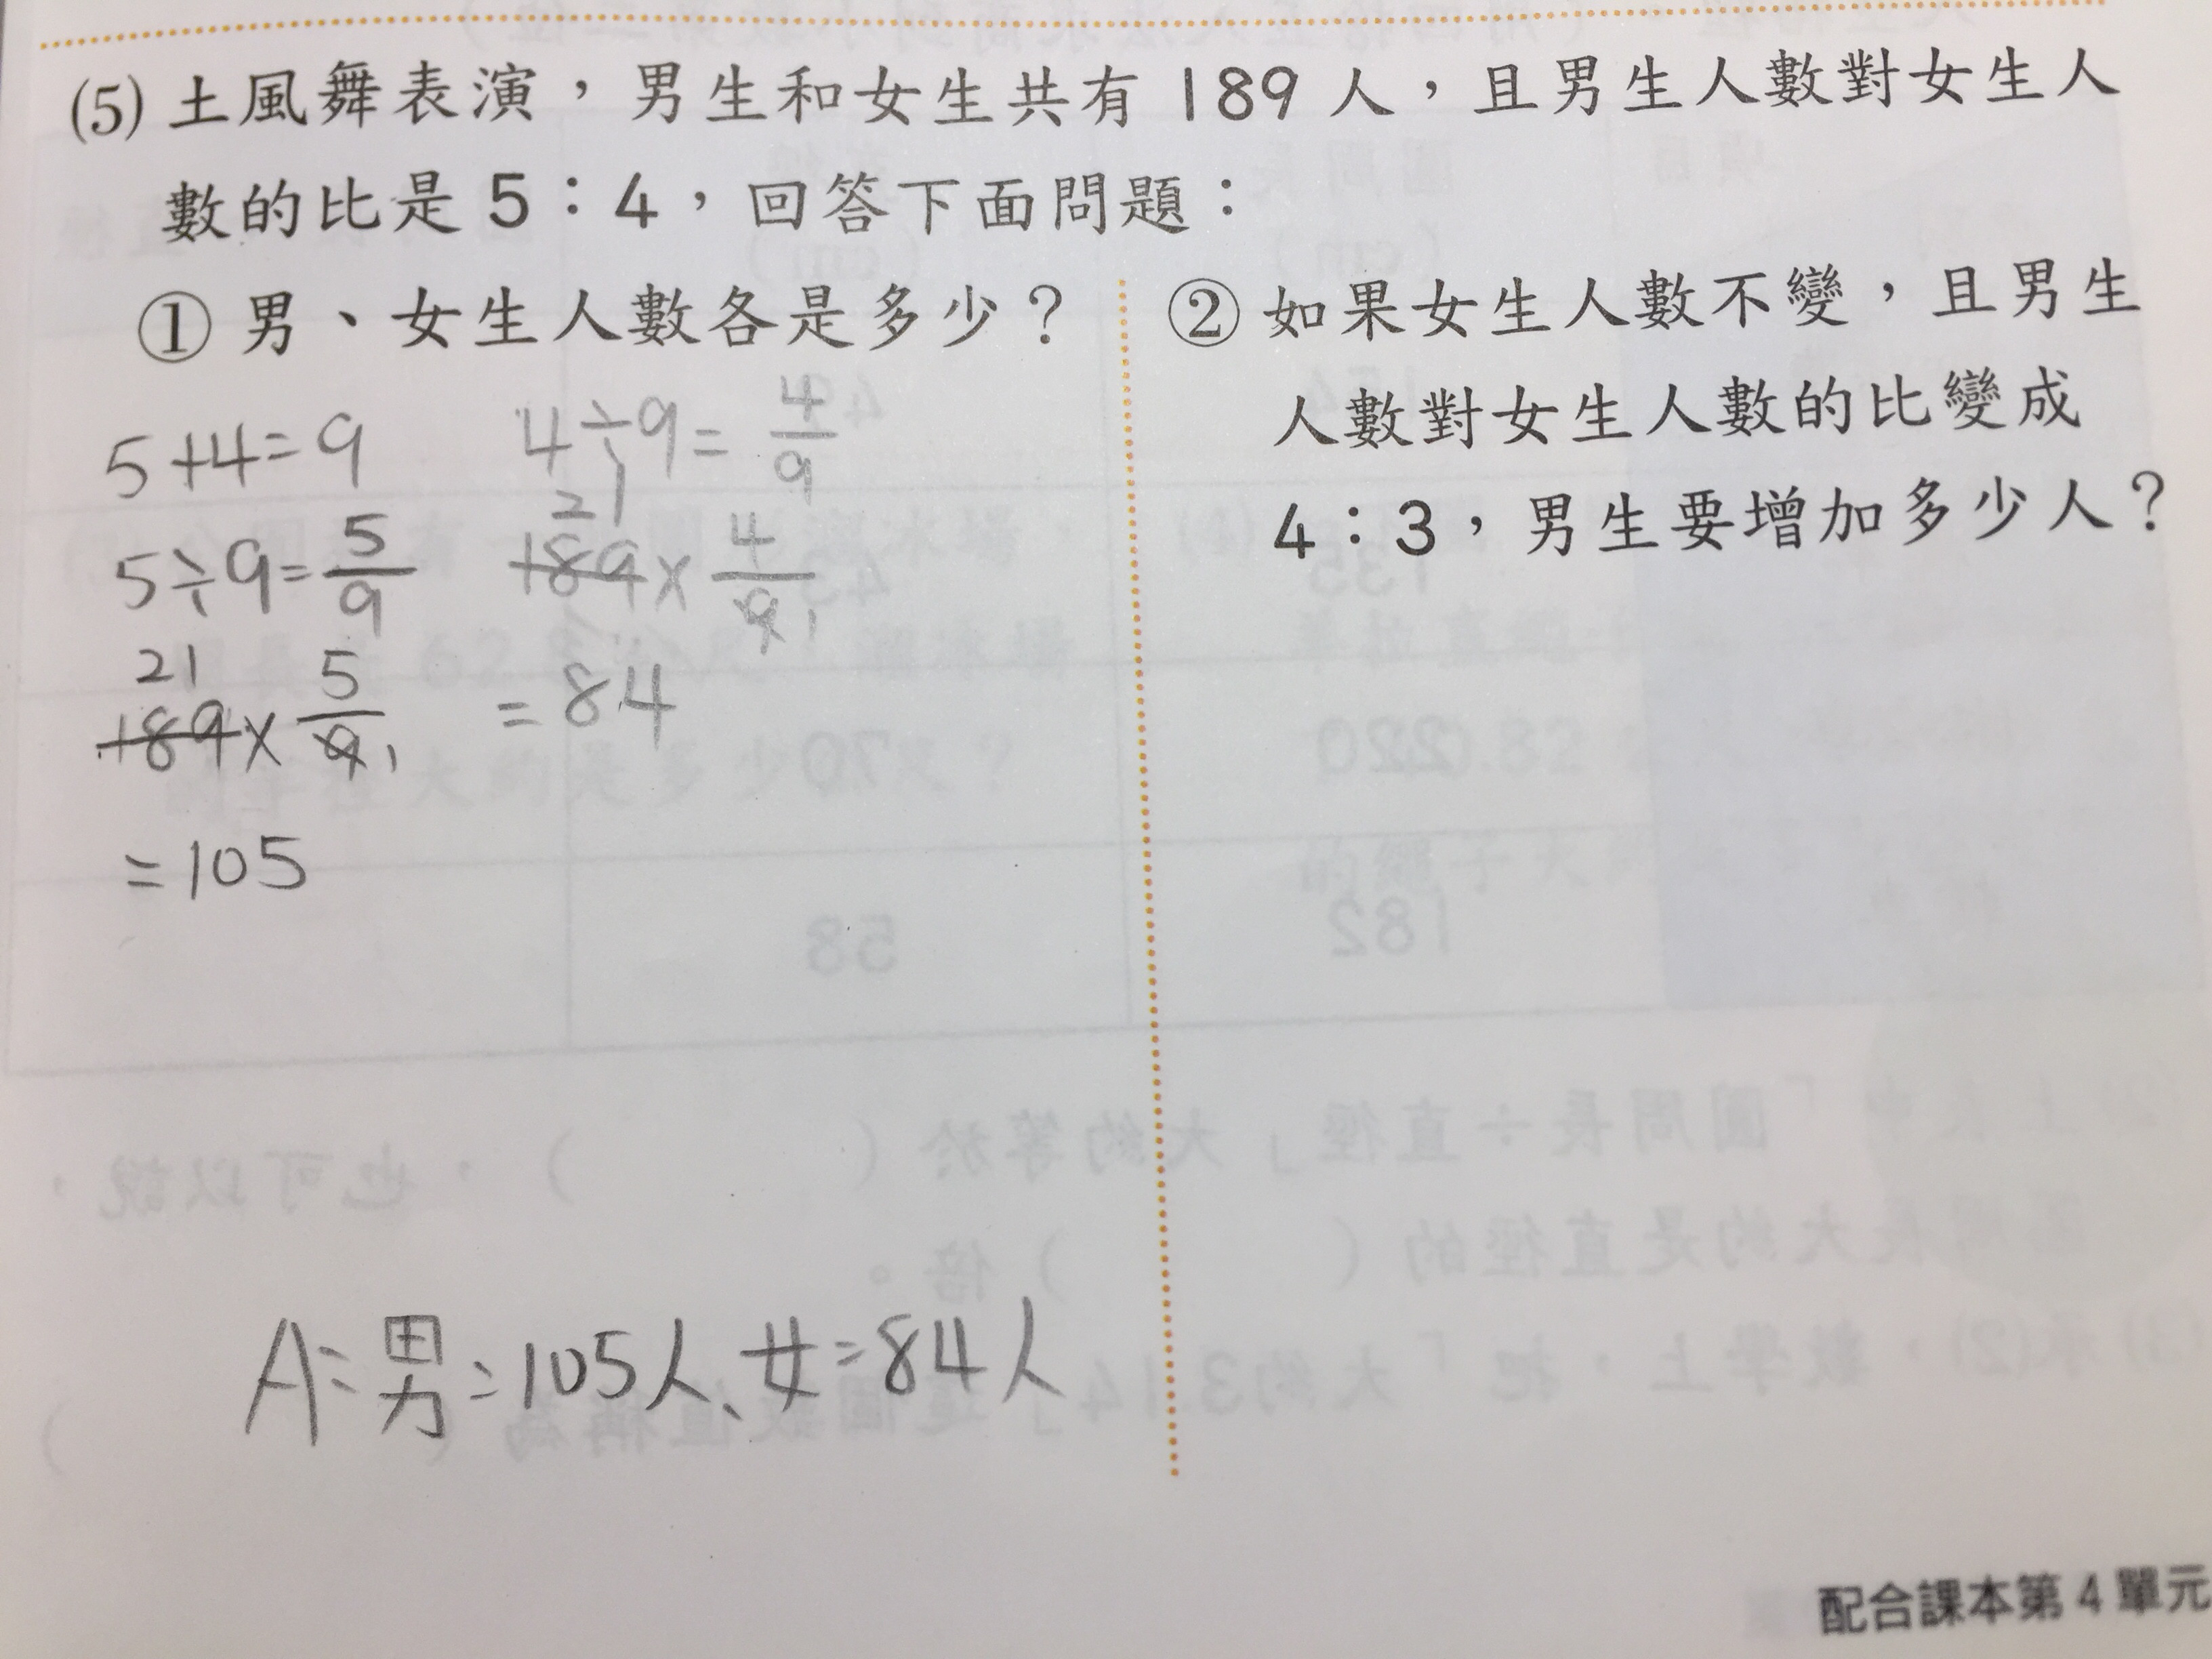 (5) 土風舞表演，男生和女生共有 189 人，且男生人數對女生人
數的比是 5：4，回答下面問題：
① 男、女生人數各是多少？
5+4=9
5÷9=5/9
21
189×5/9 1
=105
4÷9=4/9
21
189×4/9 1
=84
A=男=105人、女=84人
② 如果女生人數不變，且男生
人數對女生人數的比變成
4：3，男生要增加多少人？
配合課本第 4 單元